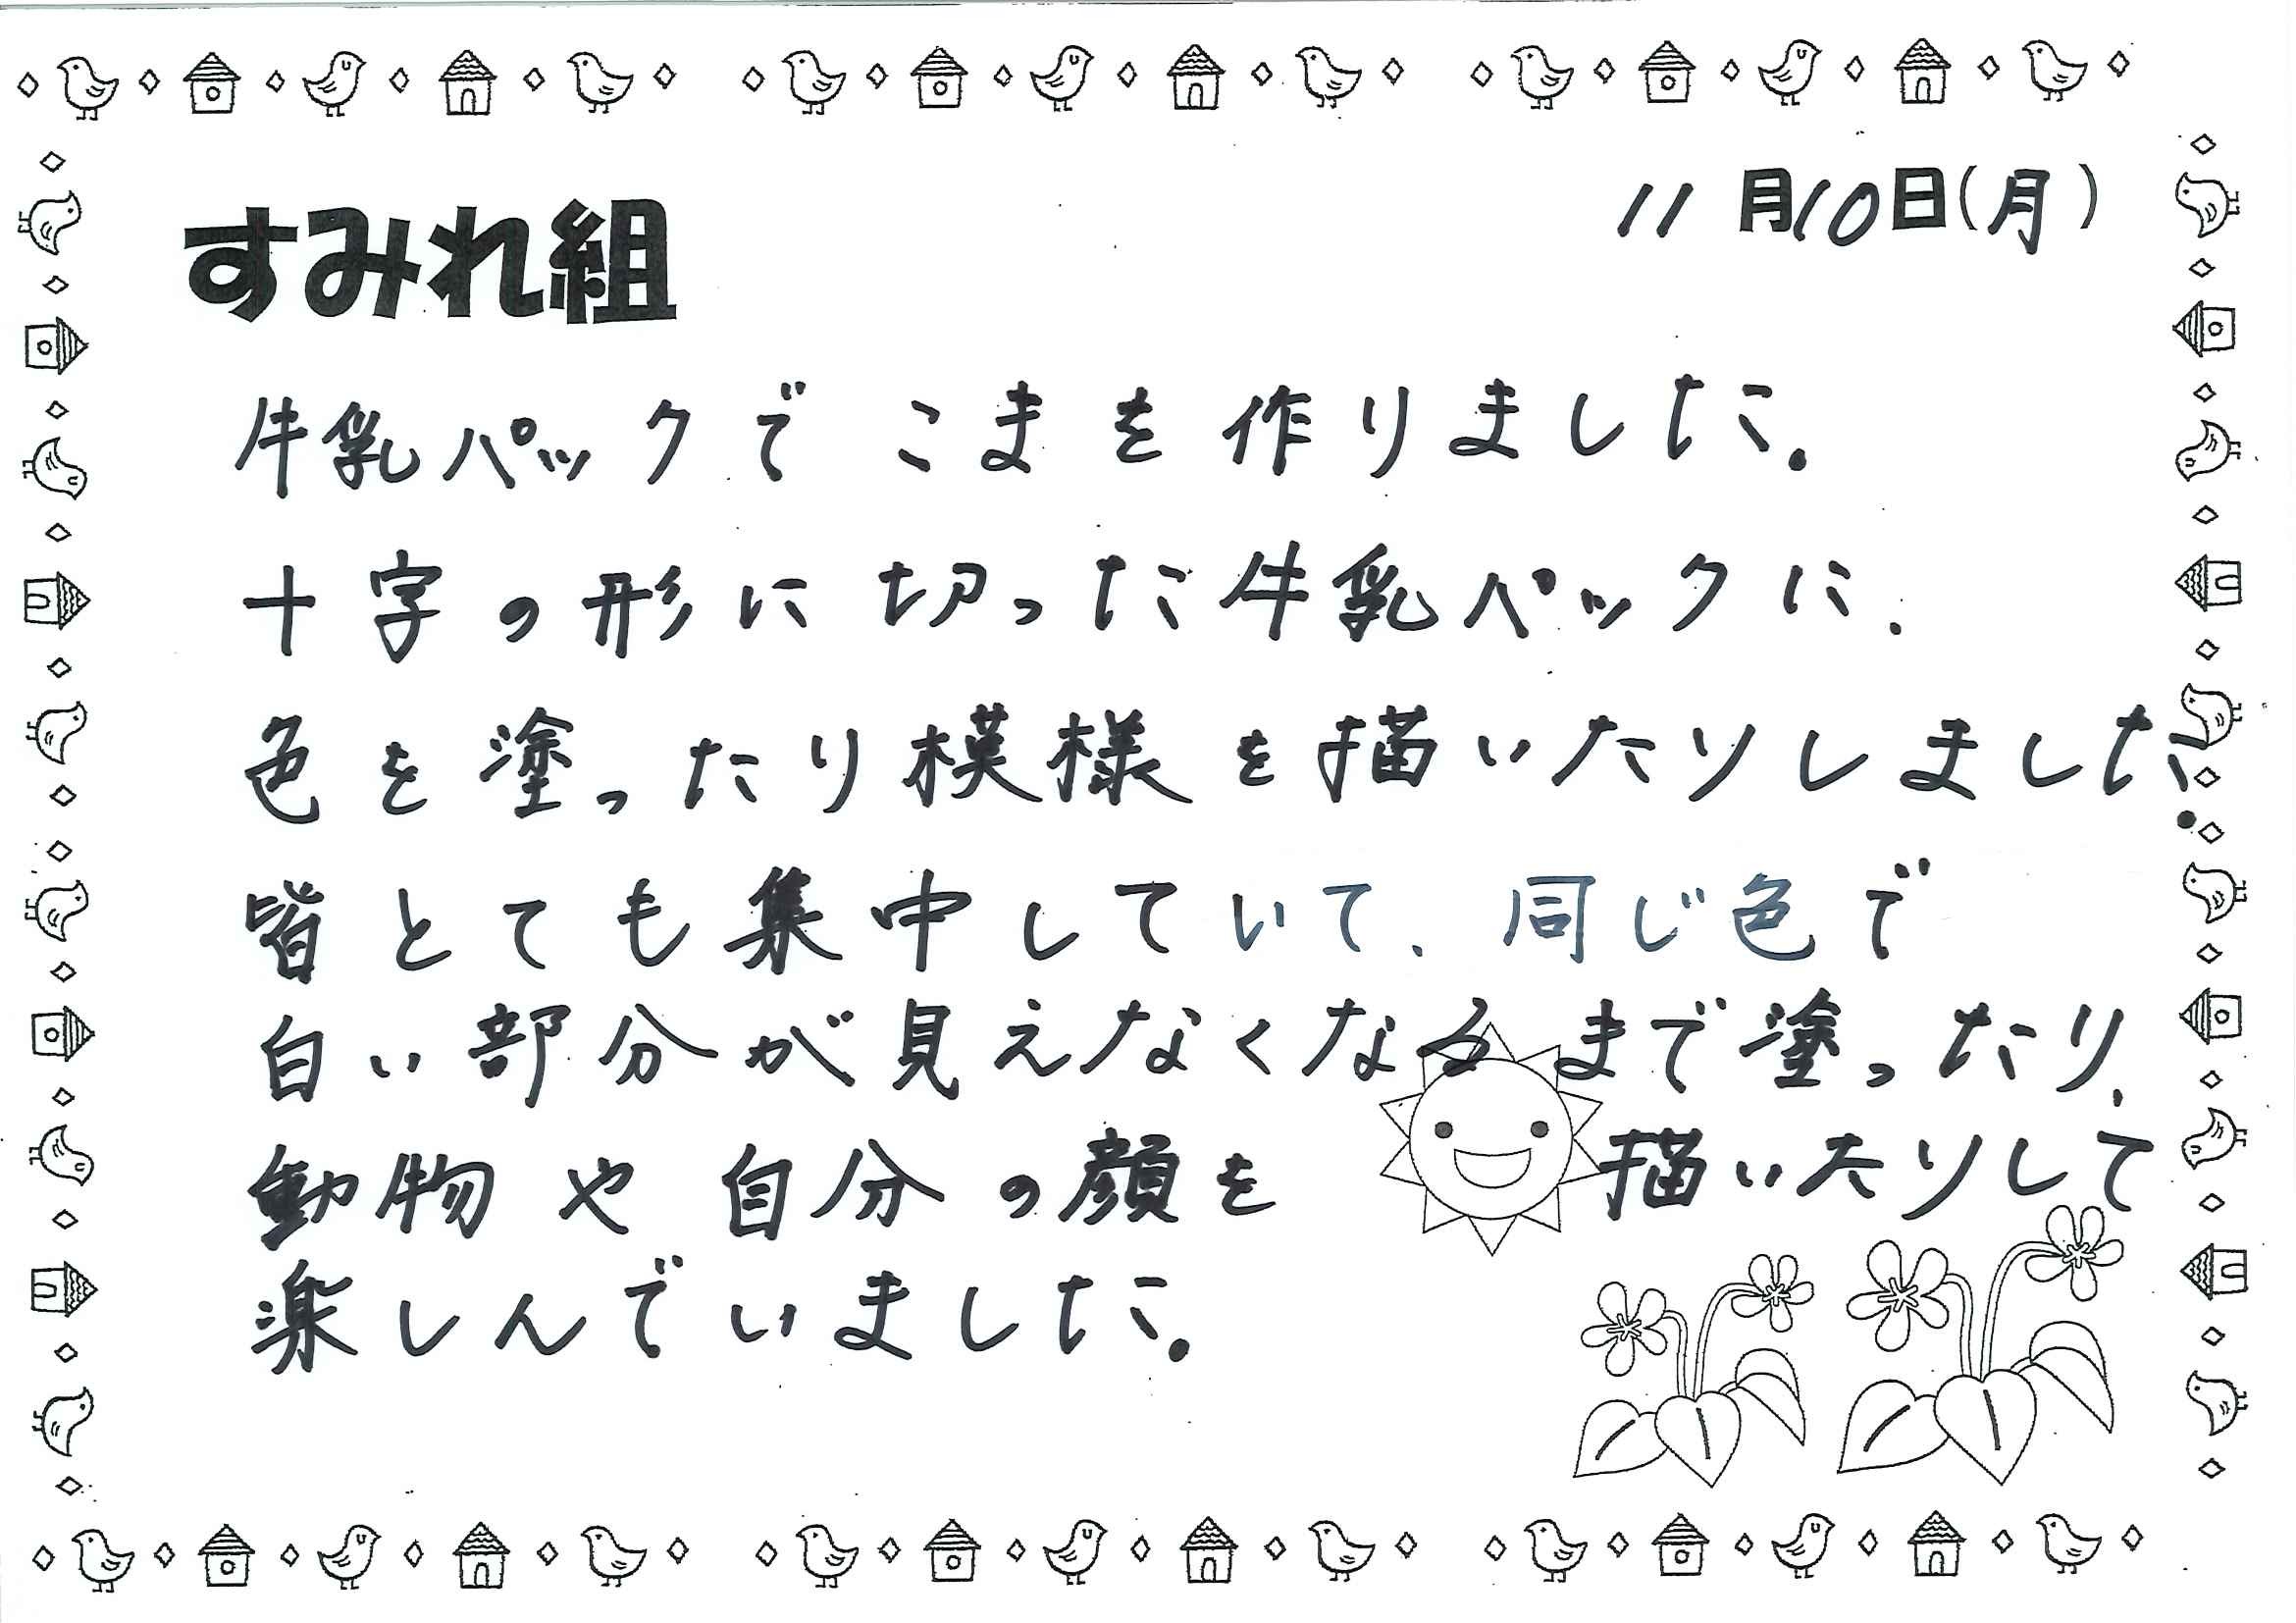 11月10日(月)
すみれ組
牛乳パックでこまを作りました。
十字の形に切った牛乳パックに、
色を塗ったり模様を描いたりしました。
皆とても集中していて、同じ色で
白い部分が見えなくなるまで塗ったり、
動物や自分の顔を描いたりして
楽しんでいました。